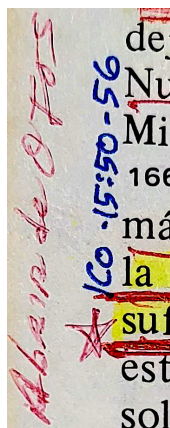 Abava de Otos
1CO-15:50-56
de
Nu
Mi
166
má
la
suf
est
sol